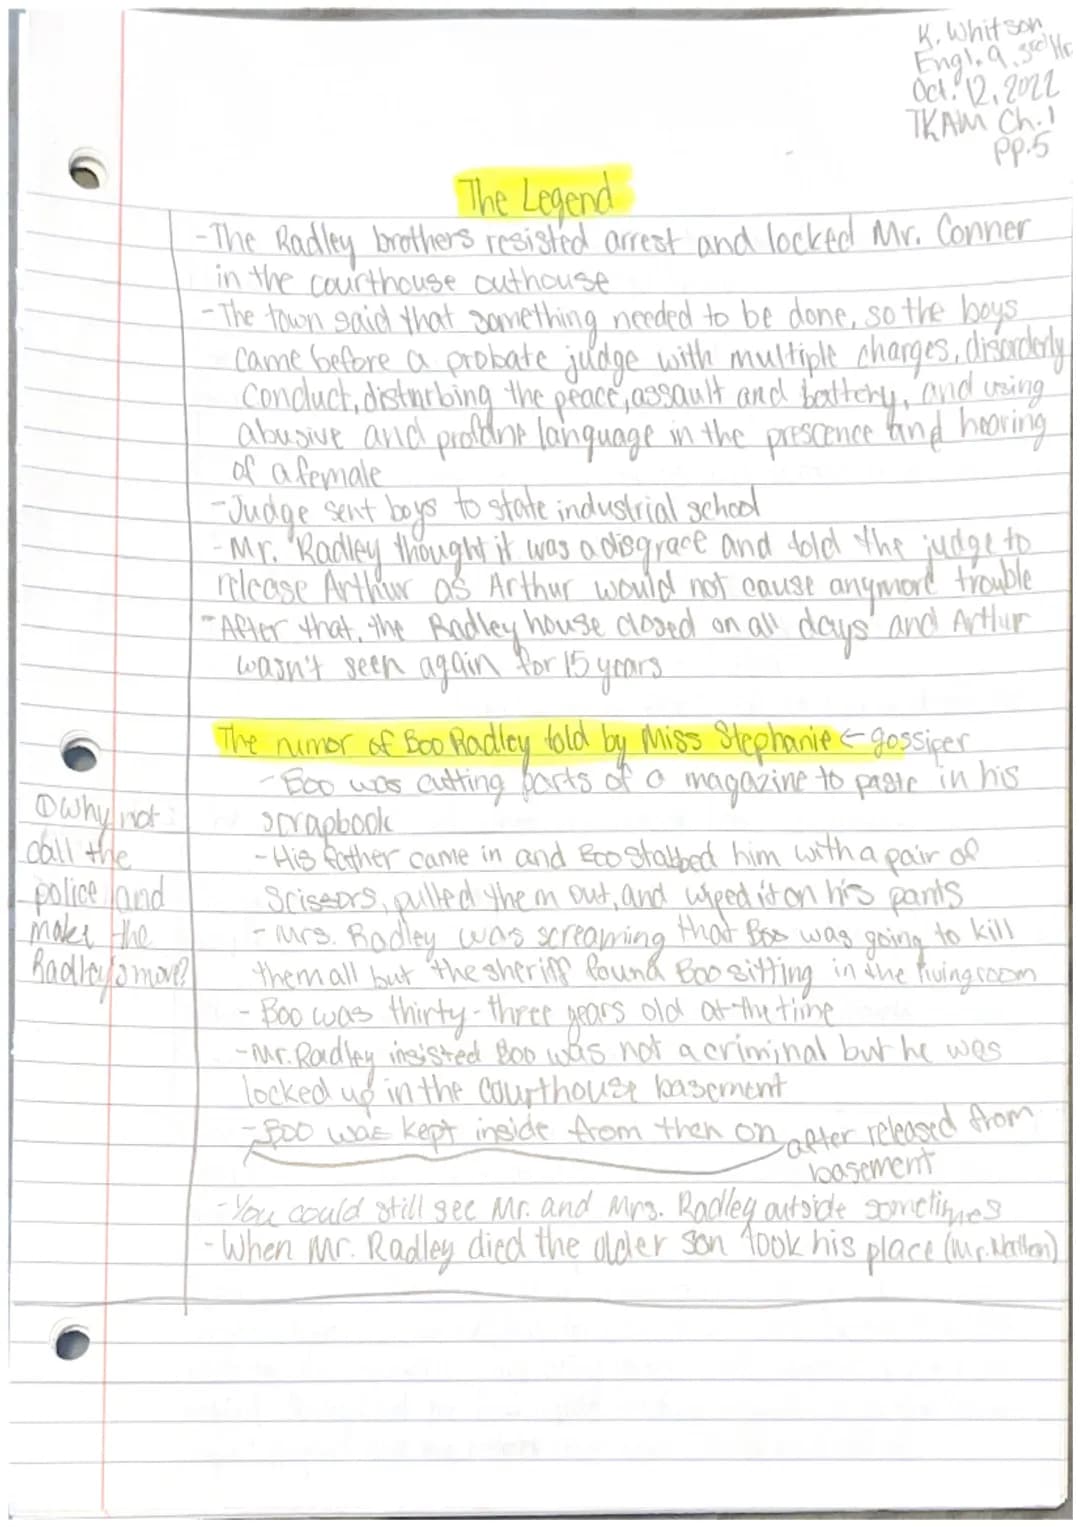 K. Whitson
Engl. 9, 3rd Hr
Oct. 12, 2022
TKAM Ch.1
pp.5
The Legend
-The Radley brothers resisted arrest and locked Mr. Conner
in the courthouse outhouse
-The town said that something needed to be done, so the boys
came before a probate judge with multiple charges, disorderly
conduct, disturbing the peace, assault and battery, and using
abusive and profane language in the prescence and hearing
of a female
-Judge sent boys to state industrial school
-Mr. Radley thought it was a disgrace and told the judge to
release Arthur as Arthur would not cause anymore trouble
-After that, the Radley house closed on all days and Arthur
wasn't seen again for 15 years
The rumor of Boo Radley told by Miss Stephanie ← gossiper
-Boo was cutting parts of a magazine to paste in his
scrapbook
-His father came in and Boo stabbed him with a pair of
scissors, pulled them out, and wiped it on his pants
-Mrs. Radley was screaming that Boo was going to kill
them all but the sheriff found Boo sitting in the livingroom
-Boo was thirty-three years old at the time
-Mr. Radley insisted Boo was not a criminal but he was
locked up in the courthouse basement
-Boo was kept inside from then on after released from
basement
-You could still see Mr. and Mrs. Radley outside sometimes
-When Mr. Radley died the older son took his place (Mr. Nathan)
① Why not
call the
police and
make the
Radley's move?